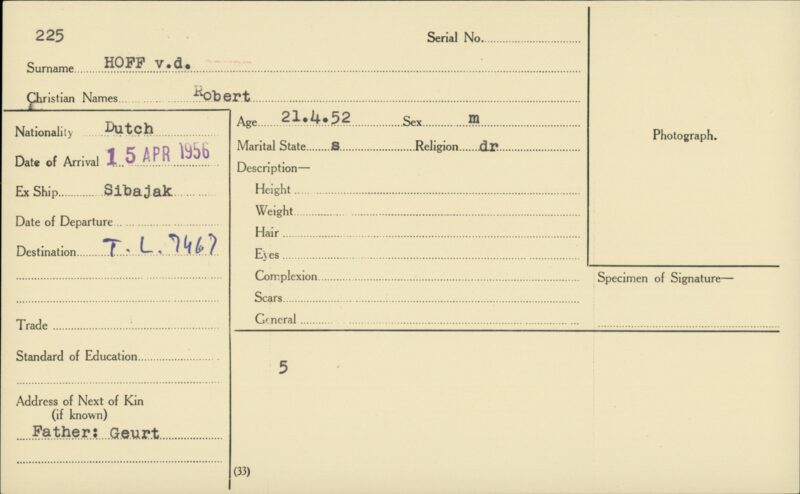 225
Serial No.
Surname HOFF v.d.
Christian Names Robert
Nationality Dutch
Date of Arrival 15 APR 1956
Ex Ship Sibajak
Date of Departure
Destination T. L. 7467
Trade
Standard of Education
Address of Next of Kin
(if known)
Father: Geurt
Age 21.4.52 Sex m
Marital State s Religion dr
Description—
Height
Weight
Hair
Eyes
Complexion
Scars
General
5
(33)
Photograph.
Specimen of Signature—